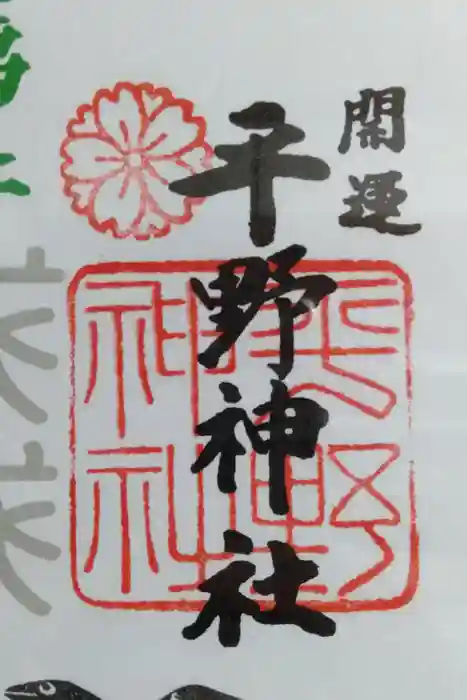 開運
平野神社
平野神社